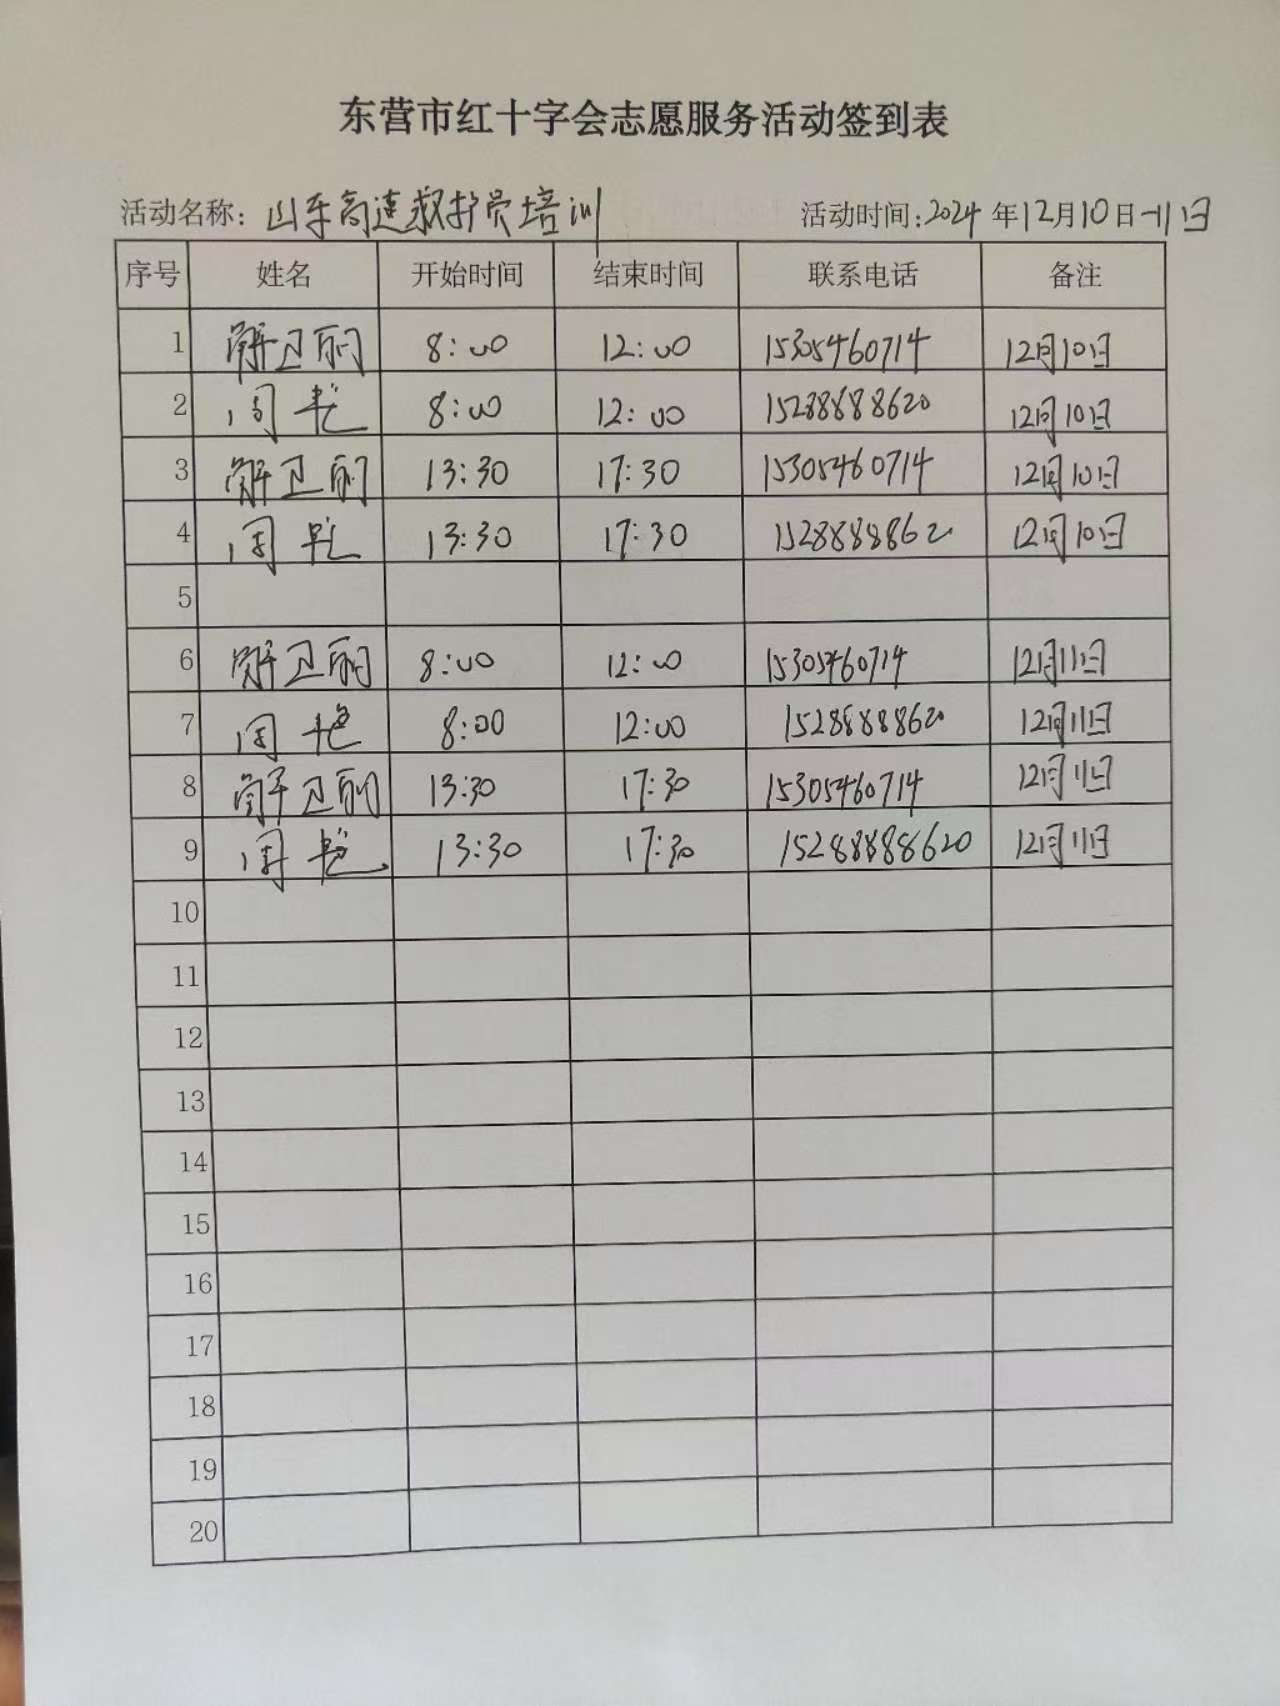 东营市红十字会志愿服务活动签到表
活动名称：山东高速救护员培训 活动时间：2024年12月10日-11日
序号 姓名 开始时间 结束时间 联系电话 备注
1 解卫丽 8:00 12:00 15305460714 12月10日
2 周艳 8:00 12:00 15288888620 12月10日
3 解卫丽 13:30 17:30 15305460714 12月10日
4 周艳 13:30 17:30 15288888620 12月10日
5
6 解卫丽 8:00 12:00 15305460714 12月11日
7 周艳 8:00 12:00 15288888620 12月11日
8 解卫丽 13:30 17:30 15305460714 12月11日
9 周艳 13:30 17:30 15288888620 12月11日
10
11
12
13
14
15
16
17
18
19
20